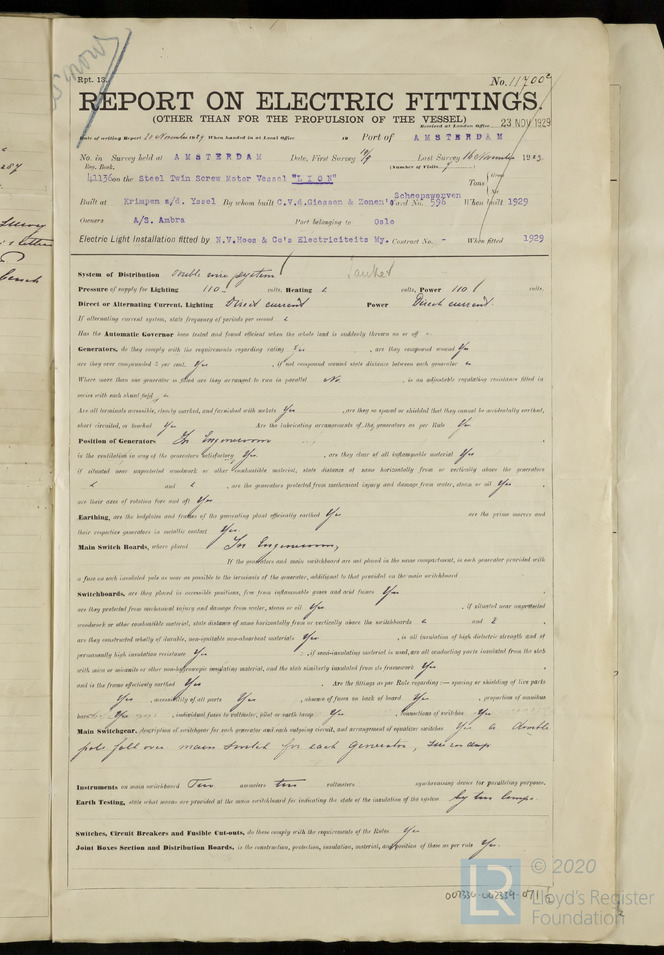 Rpt. 13.
No. 11700
REPORT ON ELECTRIC FITTINGS.
(OTHER THAN FOR THE PROPULSION OF THE VESSEL)
Received at London Office 23 NOV 1929
Date of writing Report 20 November 1929 When handed in at Local Office 19 Port of AMSTERDAM
No. in Survey held at AMSTERDAM Date, First Survey Last Survey 16 November 1929
Reg. Book. (Number of Visits
41136 on the Steel Twin Screw Motor Vessel "LION" Tons
Built at Krimpen a/d. Yssel By whom built C.V.d.Giessen & Zonen's Scheepswerven Yard No. 596 When built 1929
Owners A/S. Ambra Port belonging to Oslo
Electric Light Installation fitted by N.V.Hoos & Co's Electriciteits My. Contract No. - When fitted 1929
System of Distribution Double wire system
Pressure of supply for Lighting 110 volts, Heating volts, Power 110 volts.
Direct or Alternating Current, Lighting Direct current Power Direct current.
If alternating current system, state frequency of periods per second
Has the Automatic Governor been tested and found efficient when the whole load is suddenly thrown on or off
Generators, do they comply with the requirements regarding rating Yes , are they compound wound Yes
are they over compounded 5 per cent. Yes , if not compound wound state distance between each generator
Where more than one generator is fitted are they arranged to run in parallel No , is an adjustable regulating resistance fitted in
series with each shunt field
Are all terminals accessible, clearly marked, and furnished with sockets Yes , are they so spaced or shielded that they cannot be accidentally earthed,
short circuited, or touched Yes Are the lubricating arrangements of the generators as per Rule Yes
Position of Generators In Engineroom
is the ventilation in way of the generators satisfactory Yes , are they clear of all inflammable material Yes
if situated near unprotected woodwork or other combustible material, state distance of same horizontally from or vertically above the generators
and , are the generators protected from mechanical injury and damage from water, steam or oil Yes
are their axes of rotation fore and aft Yes
Earthing, are the bedplates and frames of the generating plant efficiently earthed Yes are the prime movers and
their respective generators in metallic contact Yes.
Main Switch Boards, where placed In Engineroom,
If the generators and main switchboard are not placed in the same compartment, is each generator provided with
a fuse on each insulated pole as near as possible to the terminals of the generator, additional to that provided on the main switchboard
Switchboards, are they placed in accessible positions, free from inflammable gases and acid fumes Yes
are they protected from mechanical injury and damage from water, steam or oil Yes , if situated near unprotected
woodwork or other combustible material, state distance of same horizontally from or vertically above the switchboards and
are they constructed wholly of durable, non-ignitable non-absorbent materials Yes , is all insulation of high dielectric strength and of
permanently high insulation resistance Yes , if semi-insulating material is used, are all conducting parts insulated from the slab
with mica or micanite or other non-hygroscopic insulating material, and the slab similarly insulated from its framework Yes
and is the frame effectively earthed Yes Are the fittings as per Rule regarding:— spacing or shielding of live parts
Yes , accessibility of all parts Yes , absence of fuses on back of board Yes , proportion of omnibus
bars Yes , individual fuses to voltmeter, pilot or earth lamp Yes , connections of switches Yes
Main Switchgear, description of switchgear for each generator and each outgoing circuit, and arrangement of equalizer switches Yes a double
pole main switch for each Generator,
Instruments on main switchboard Two ammeters two voltmeters synchronising device for paralleling purposes.
Earth Testing, state what means are provided at the main switchboard for indicating the state of the insulation of the system by two lamps.
Switches, Circuit Breakers and Fusible Cut-outs, do these comply with the requirements of the Rules Yes
Joint Boxes Section and Distribution Boards, is the construction, protection, insulation, material, and position of these as per rule Yes.
LR © 2020
Lloyd's Register
Foundation